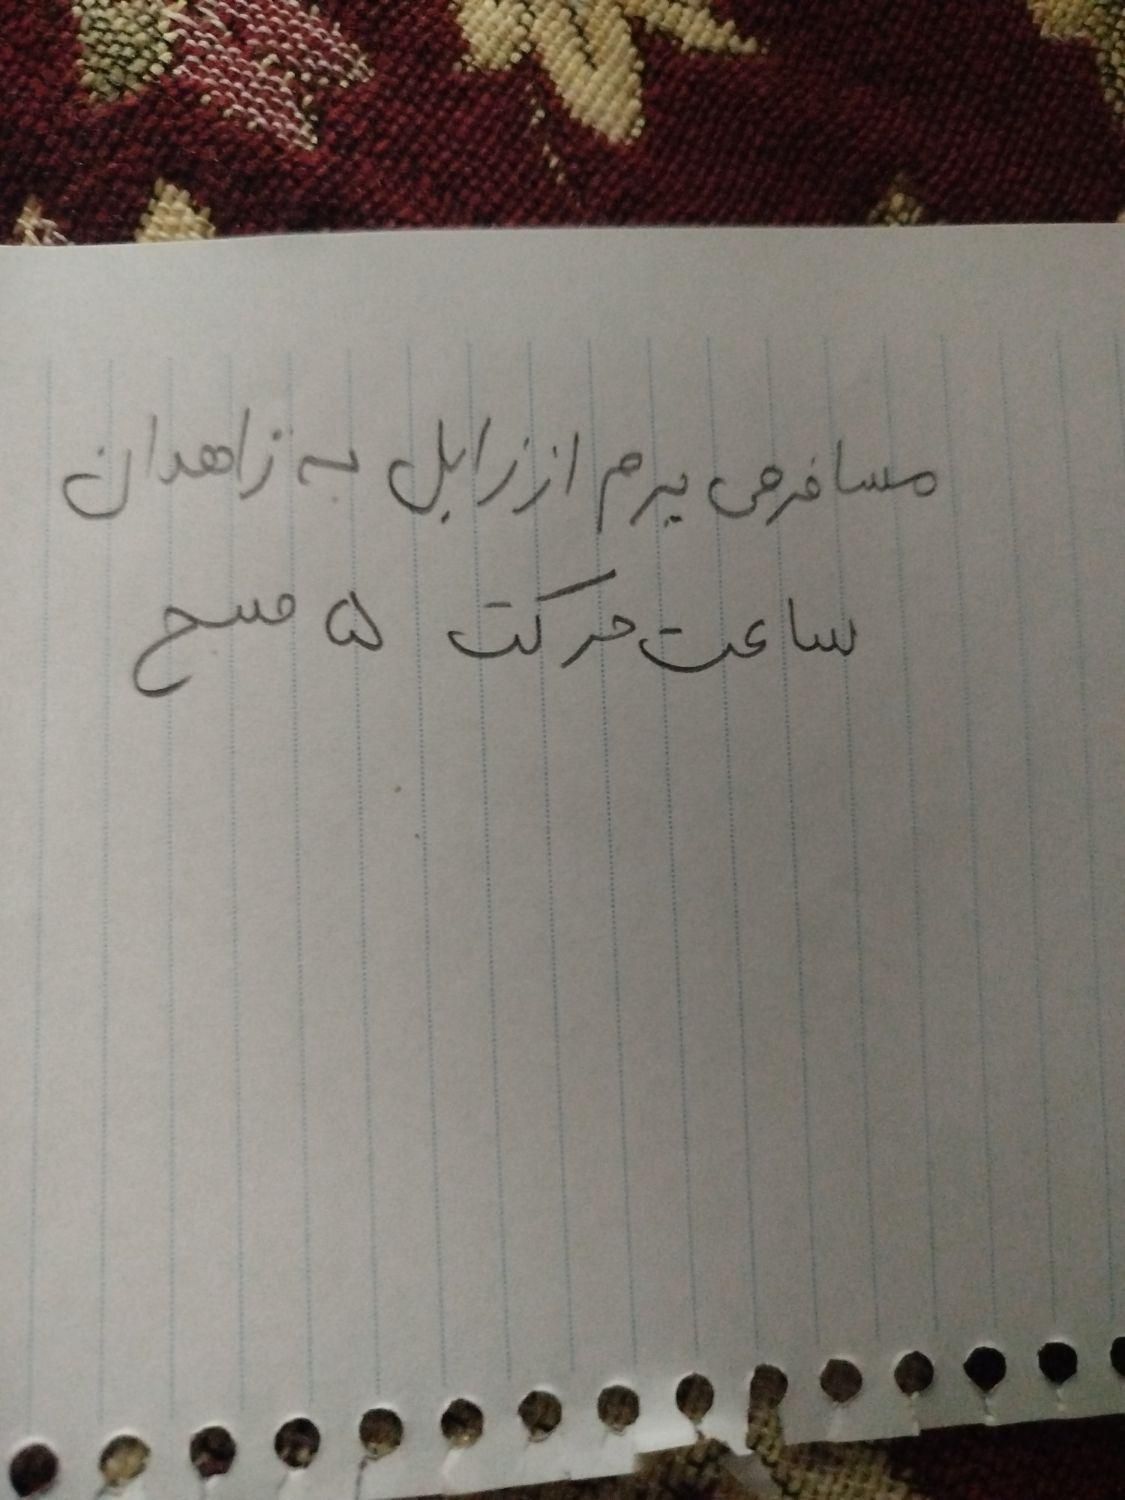 مسافر می برم از زابل به زاهدان
ساعت حرکت ۵ صبح